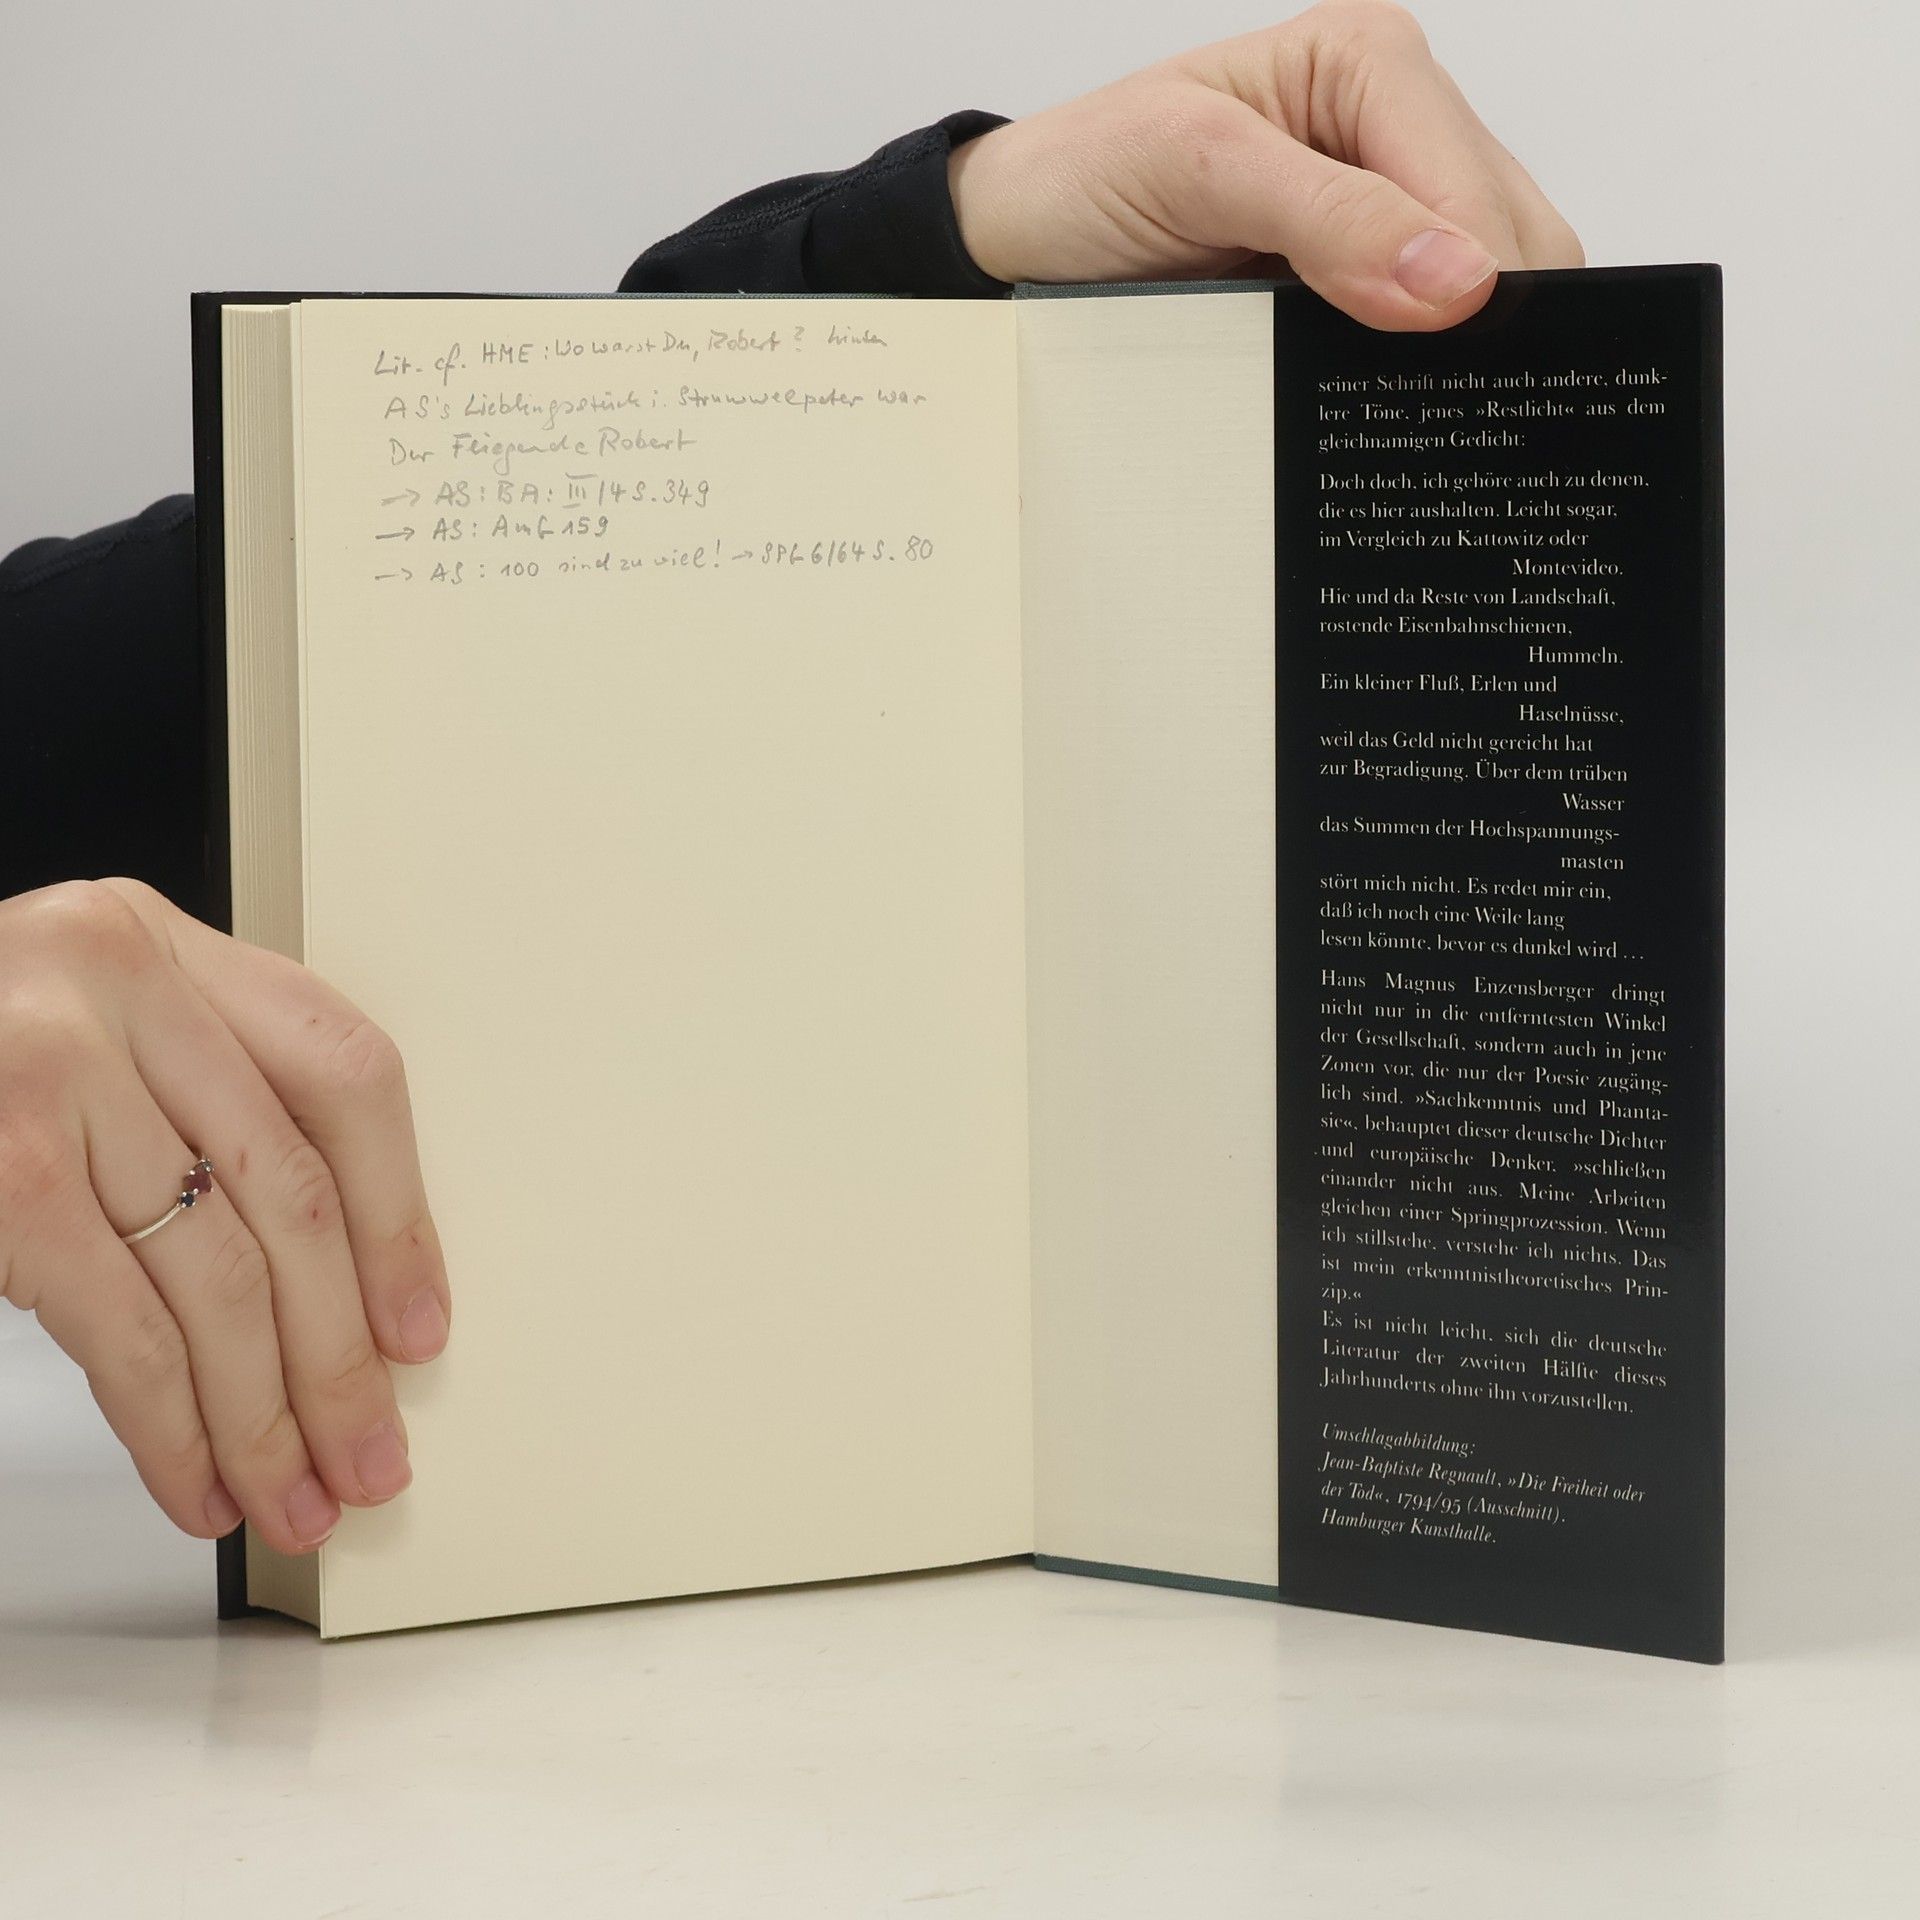 Lit. cf. HME: Wo warst Du, Robert? hinten
AS's Lieblingsstück i. Struwwelpeter war
Der Fliegende Robert
→ AS: BA: III/4 S. 349
→ AS: 159
→ AS: 100 sind zu viel! → 6/64 S. 80
seiner Schrift nicht auch andere, dunk-
lere Töne, jenes »Restlicht« aus dem
gleichnamigen Gedicht:
Doch doch, ich gehöre auch zu denen,
die es hier aushalten. Leicht sogar,
im Vergleich zu Kattowitz oder
Montevideo.
Hie und da Reste von Landschaft,
rostende Eisenbahnschienen,
Hummeln.
Ein kleiner Fluß, Erlen und
Haselnüsse,
weil das Geld nicht gereicht hat
zur Begradigung. Über dem trüben
Wasser
das Summen der Hochspannungs-
masten
stört mich nicht. Es redet mir ein,
daß ich noch eine Weile lang
lesen könnte, bevor es dunkel wird ...
Hans Magnus Enzensberger dringt
nicht nur in die entferntesten Winkel
der Gesellschaft, sondern auch in jene
Zonen vor, die nur der Poesie zugäng-
lich sind. »Sachkenntnis und Phanta-
sie«, behauptet dieser deutsche Dichter
und europäische Denker, »schließen
einander nicht aus. Meine Arbeiten
gleichen einer Springprozession. Wenn
ich stillstehe, verstehe ich nichts. Das
ist mein erkenntnistheoretisches Prin-
zip.«
Es ist nicht leicht, sich die deutsche
Literatur der zweiten Hälfte dieses
Jahrhunderts ohne ihn vorzustellen.
Umschlagabbildung:
Jean-Baptiste Regnault, »Die Freiheit oder
der Tod«, 1794/95 (Ausschnitt).
Hamburger Kunsthalle.